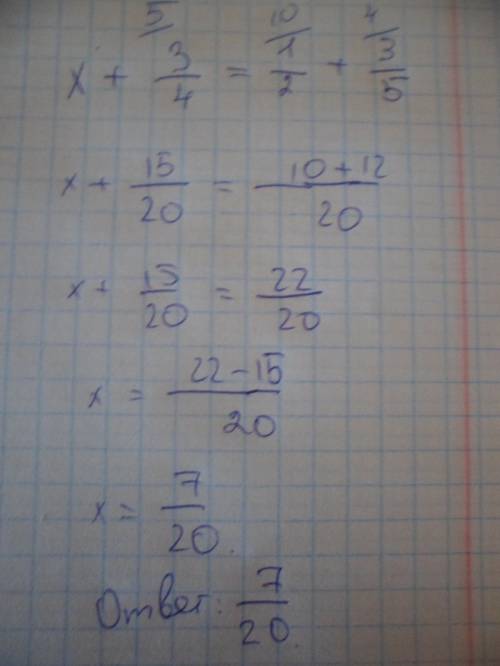 5/ 10/ 4/
x + 3/4 = 1/2 + 3/5
x + 15/20 = (10 + 12)/20
x + 15/20 = 22/20
x = (22 - 15)/20
x = 7/20.
Ответ: 7/20.